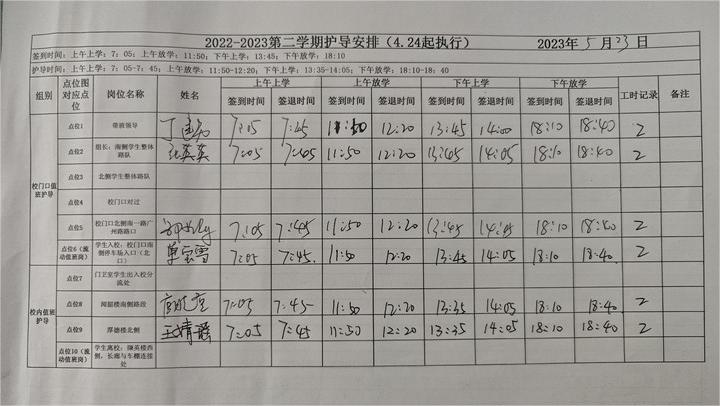 2022-2023第二学期护导安排（4.24起执行） 2023年5月23日
签到时间：上午上学：7：05；上午放学：11:50；下午上学：13:45；下午放学：18:10
护导时间：上午上学：7：05-7：45；上午放学：11:50-12:20；下午上学：13:35-14:05；下午放学：18:10-18：40
组别 点位图对应点位 岗位名称 姓名 上午上学 上午放学 下午上学 下午放学 工时记录 备注
签到时间 签退时间 签到时间 签退时间 签到时间 签退时间 签到时间 签退时间
校门口值班护导
点位1 带班领导 7:05 7:45 11:50 12:20 13:45 14:00 18:10 18:40 2
点位2 组长：南侧学生整体路队 张英英 7:05 7:45 11:50 12:20 13:45 14:05 18:10 18:40 2
点位3 北侧学生整体路队
点位4 校门口对过
点位5 校门口北侧南一路广州路路口 7:05 7:45 11:50 12:20 13:45 14:05 18:10 18:40 2
点位6（流动值班岗） 学生入校：校门口南侧停车场入口（北口） 7:05 7:45 11:50 12:20 13:45 14:05 18:10 18:40 2
校内值班护导
点位7 门卫室学生出入校分流处
点位8 闻韶楼南侧路段 7:05 7:45 11:50 12:20 13:35 14:05 18:10 18:40 2
点位9 厚德楼北侧 王婧 7:05 7:45 11:50 12:20 13:35 14:05 18:10 18:40 2
点位10（流动值班岗） 学生离校：撷英楼西侧，长廊与车棚连接处